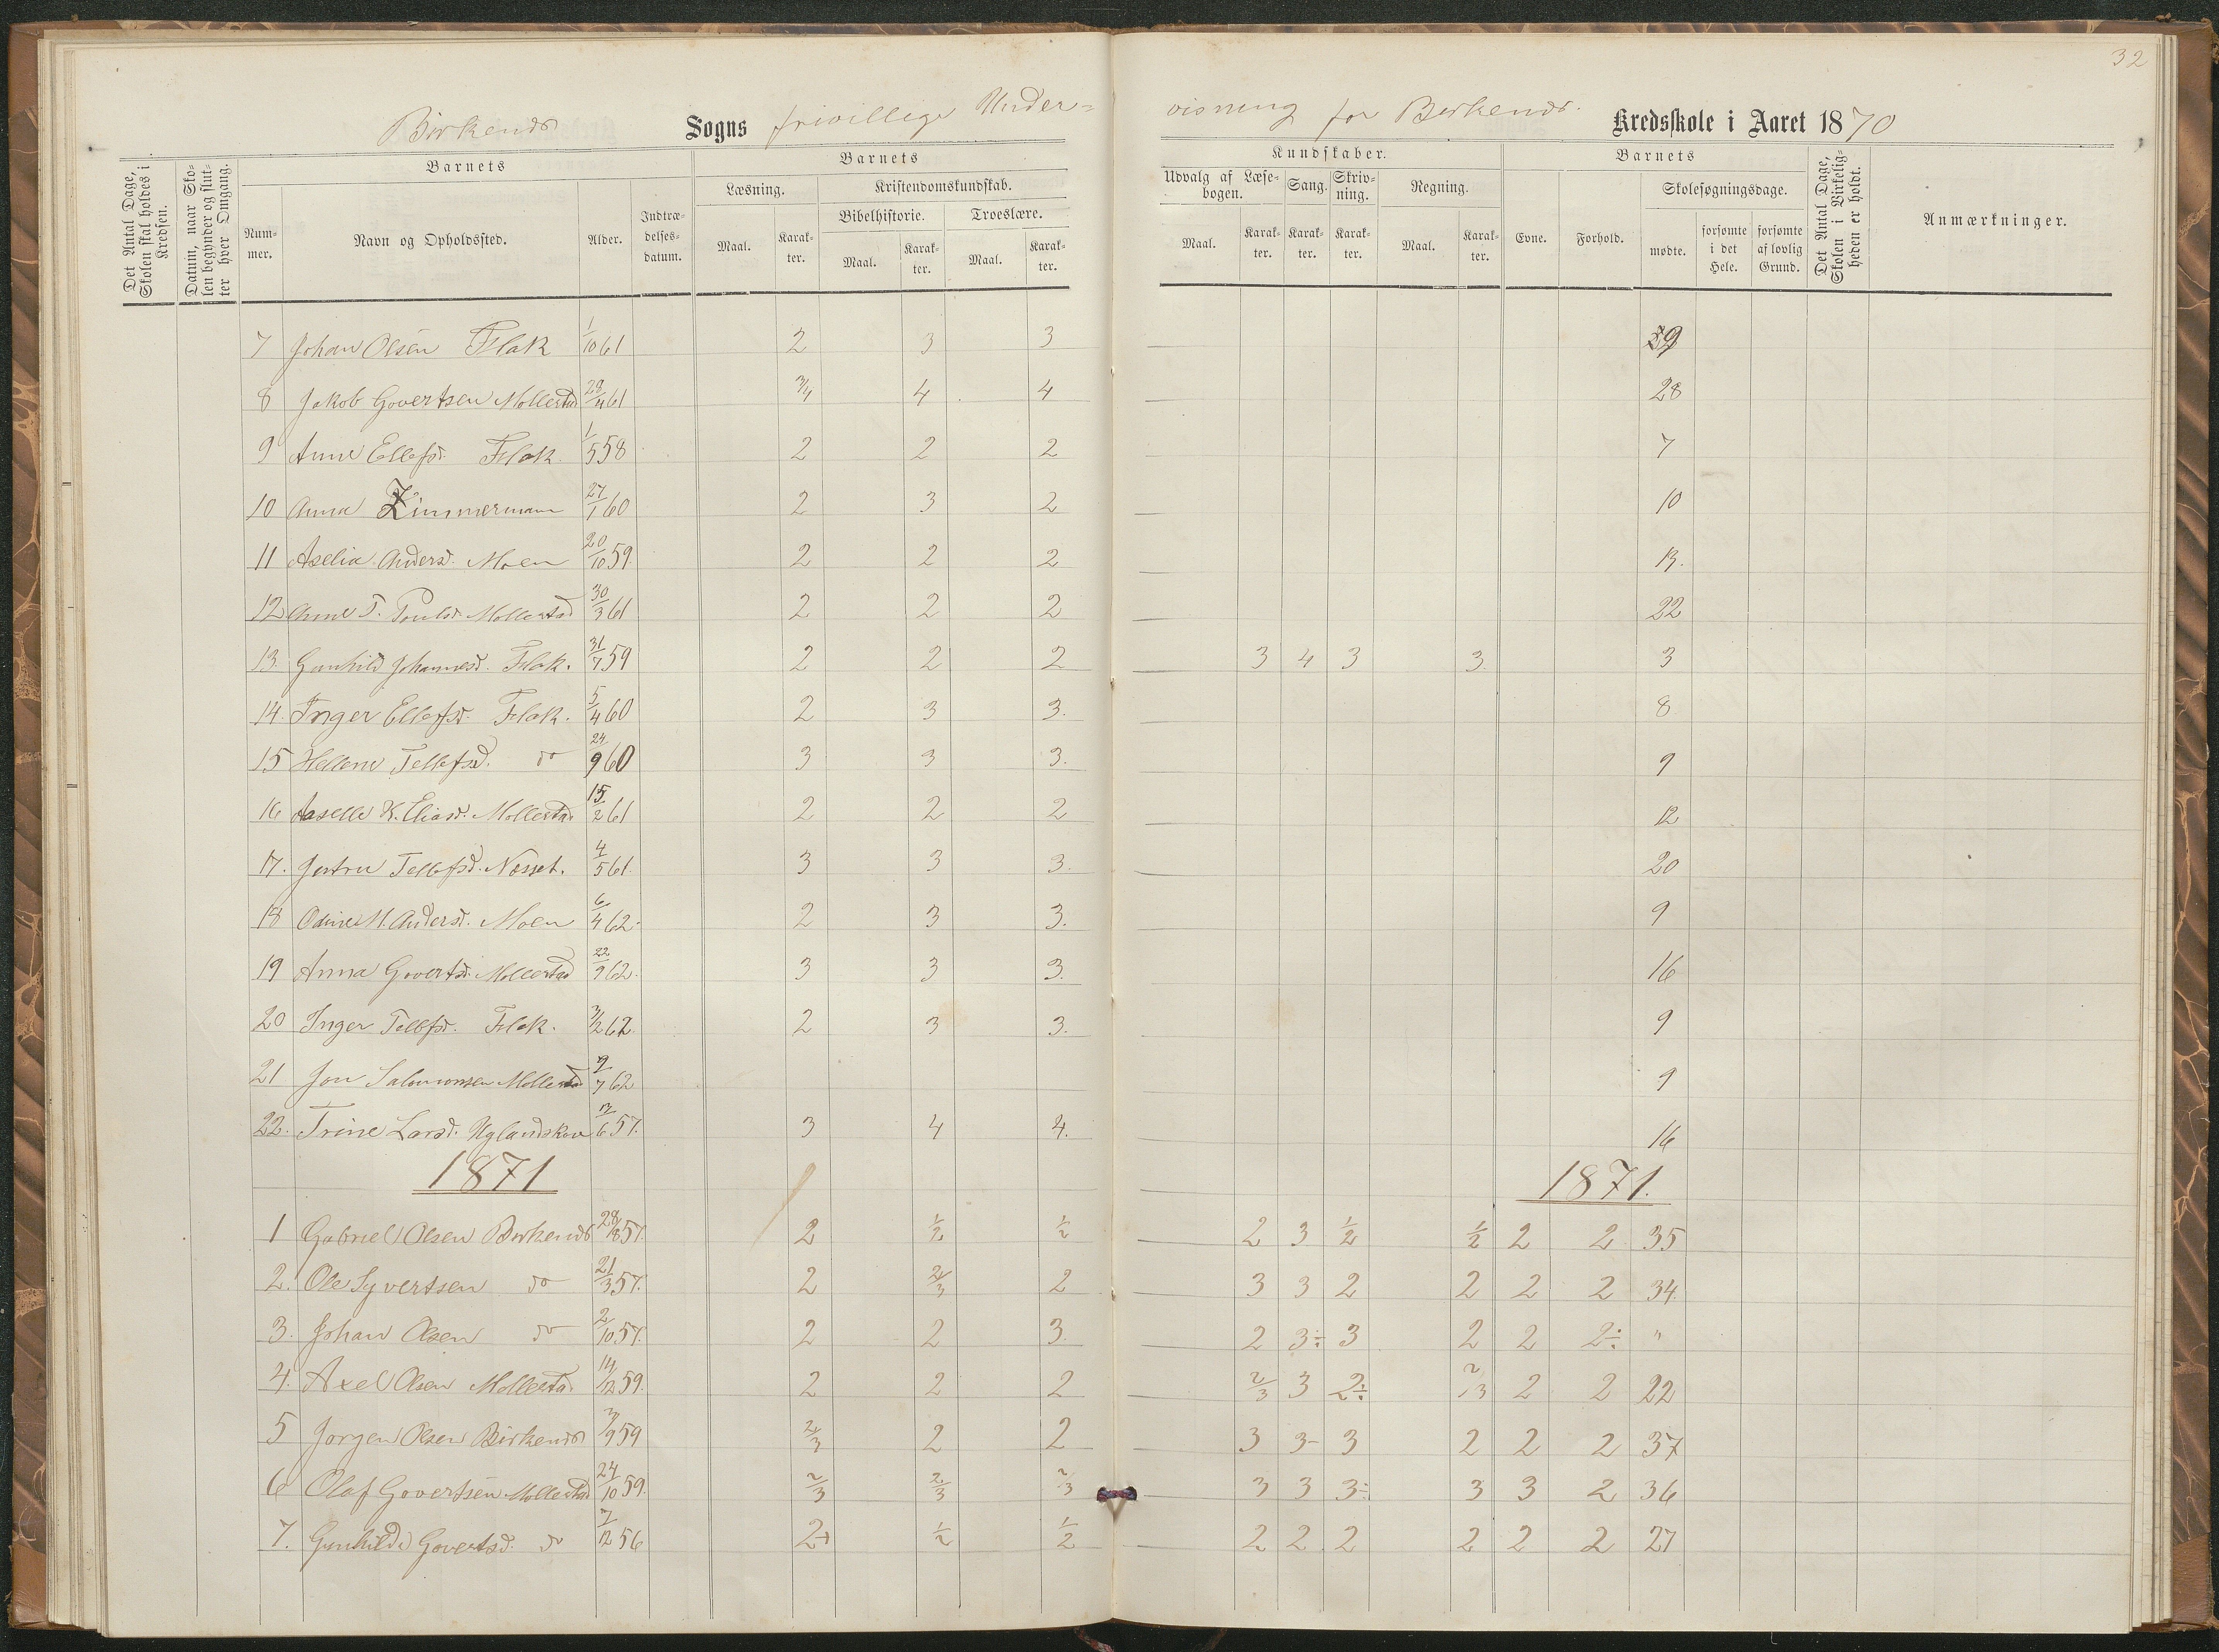 32
Birkenes Sogns frivillige Under= visning for Birkenes Kredsskole i Aaret 1870
Det Antal Dage, Skolen skal holdes i Kredsen.
Datum, naar Skolen begynder og slutter hver Omgang.
Barnets
Nummer.
Navn og Opholdssted.
Alder.
Indtrædelsesdatum.
Barnets
Læsning.
Maal. Karakter.
Kristendomskundskab.
Bibelhistorie. Troeslære.
Maal. Karakter. Maal. Karakter.
Kundskaber.
Udvalg af Læsebogen. Sang. Skrivning. Regning.
Maal. Karakter. Karakter. Karakter. Maal. Karakter.
Barnets
Evne. Forhold.
Skolesøgningsdage.
mødte. forsømte i det Hele. forsømte af lovlig Grund.
Det Antal Dage, Skolen i Virkeligheden er holdt.
Anmærkninger.
7 Johan Olsen Flak 1/10 61 2 3 3 39
8 Jakob Govertsen Mollestad 29/4 61 3/4 4 4 28
9 Anne Ellefsd. Flak 1/5 58 2 2 2 7
10 Anna Zimmermann 27/1 60 2 3 2 10
11 Aselia Andersd. Moen 20/10 59. 2 2 2 13.
12 Anne T. Poulsd. Mollestad 30/3 61 2 2 2 22
13. Gunhild Johannesd. Flak. 31/7 59 2 2 2 3 4 3 3. 3
14. Inger Ellefsd. Flak. 5/4 60 2 3 3. 8
15 Hellene Tellefsd. do 24/9 60 3 3 3. 9
16 Aaselle K. Eliasd. Mollestad 15/2 61 2 2 2 12
17. Jertru Tellefsd. Nesset. 4/5 61. 3 3 3. 20
18 Odine M. Andersd. Moen 6/4 62. 2 3 3. 9
19 Anna Govertsd. Mollestad 22/9 62. 3 3 3. 16
20 Inger Tellefsd. Flak. 3/2 62. 2 3 3. 9
21 Jon Salomonsen Mollestad 9/7 62 9
22. Trine Larsd. Uglandskow 13/6 57. 3 4 4. 16
1871 1871.
1 Gabriel Olsen Birkenes 28/8 57. 2 1/2 1/2 2 3 1/2 1/2 2 2 35
2. Ole Syvertsen do 21/3 57. 2 2/3 2 3 3 2 2 2 2 34.
3. Johan Olsen do 2/10 57. 2 2 3. 2 3÷ 3 2 2 2÷ "
4. Axel Olsen Mollestad 14/12 59. 2 2 2 2/3 3 2÷ 2/3 2 2 22
5 Jørgen Olsen Birkenes 3/9 59 2/3 2 2 3 3- 3 2 2 2 37
6 Olaf Govertsen Mollestad 24/10 59. 2/3 2/3 2/3 3 3 3÷ 3 3 2 36
7. Gunhilde Govertsd. do 7/12 56 2+ 1/2 1/2 2 2 2 2 2 2 27